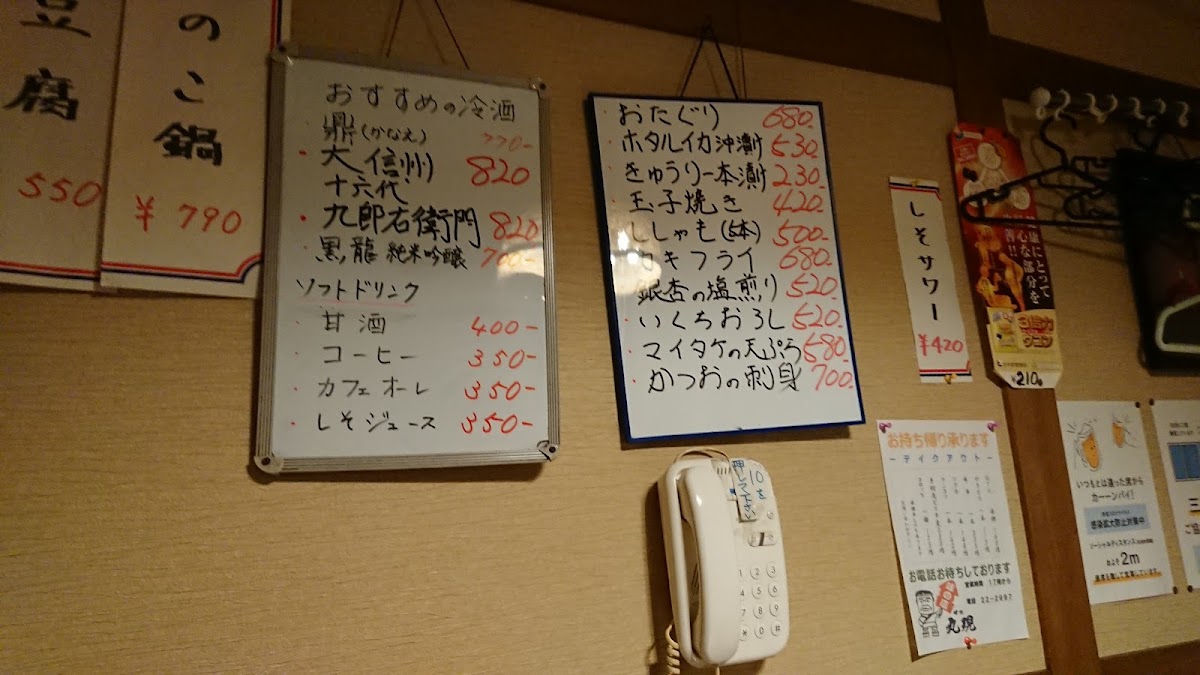 豆腐
550
のこ鍋
¥790
おすすめの冷酒
鼎(かなえ) 770-
大信州 820
十六代
九郎右衛門 820
黒龍 純米吟醸 700-
ソフトドリンク
甘酒 400-
コーヒー 350-
カフェオーレ 350-
しそジュース 350-
おたぐり 680-
ホタルイカ沖漬け 530-
きゅうり一本漬け 230-
玉子焼き 420-
ししゃも(5本) 500-
カキフライ 680-
銀杏の塩煎り 520-
いくらおろし 520-
マイタケの天ぷら 580-
かつおの刺身 700-
10を
押して下さい
しそサワー
¥420
¥210
お持ち帰り承ります
ーテイクアウトー
お電話お待ちしております
営業時間 17時から
電話 22-2997
いつもとは違った席から
カーーンパイ!
感染拡大防止対策中
ソーシャルディスタンス
およそ2m